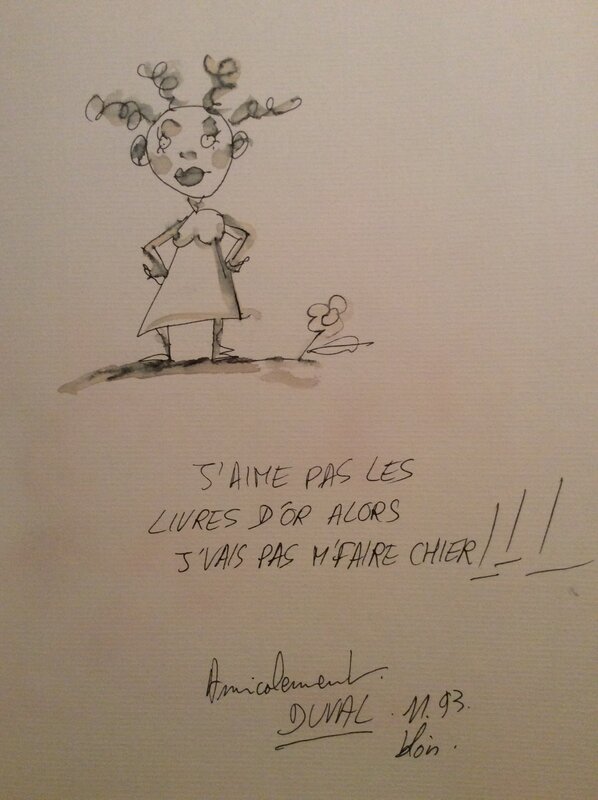 J'AIME PAS LES
LIVRES D'OR ALORS
J'VAIS PAS M'FAIRE CHIER!!!
Amicalement.
DUVAL. 11.93.
blois.